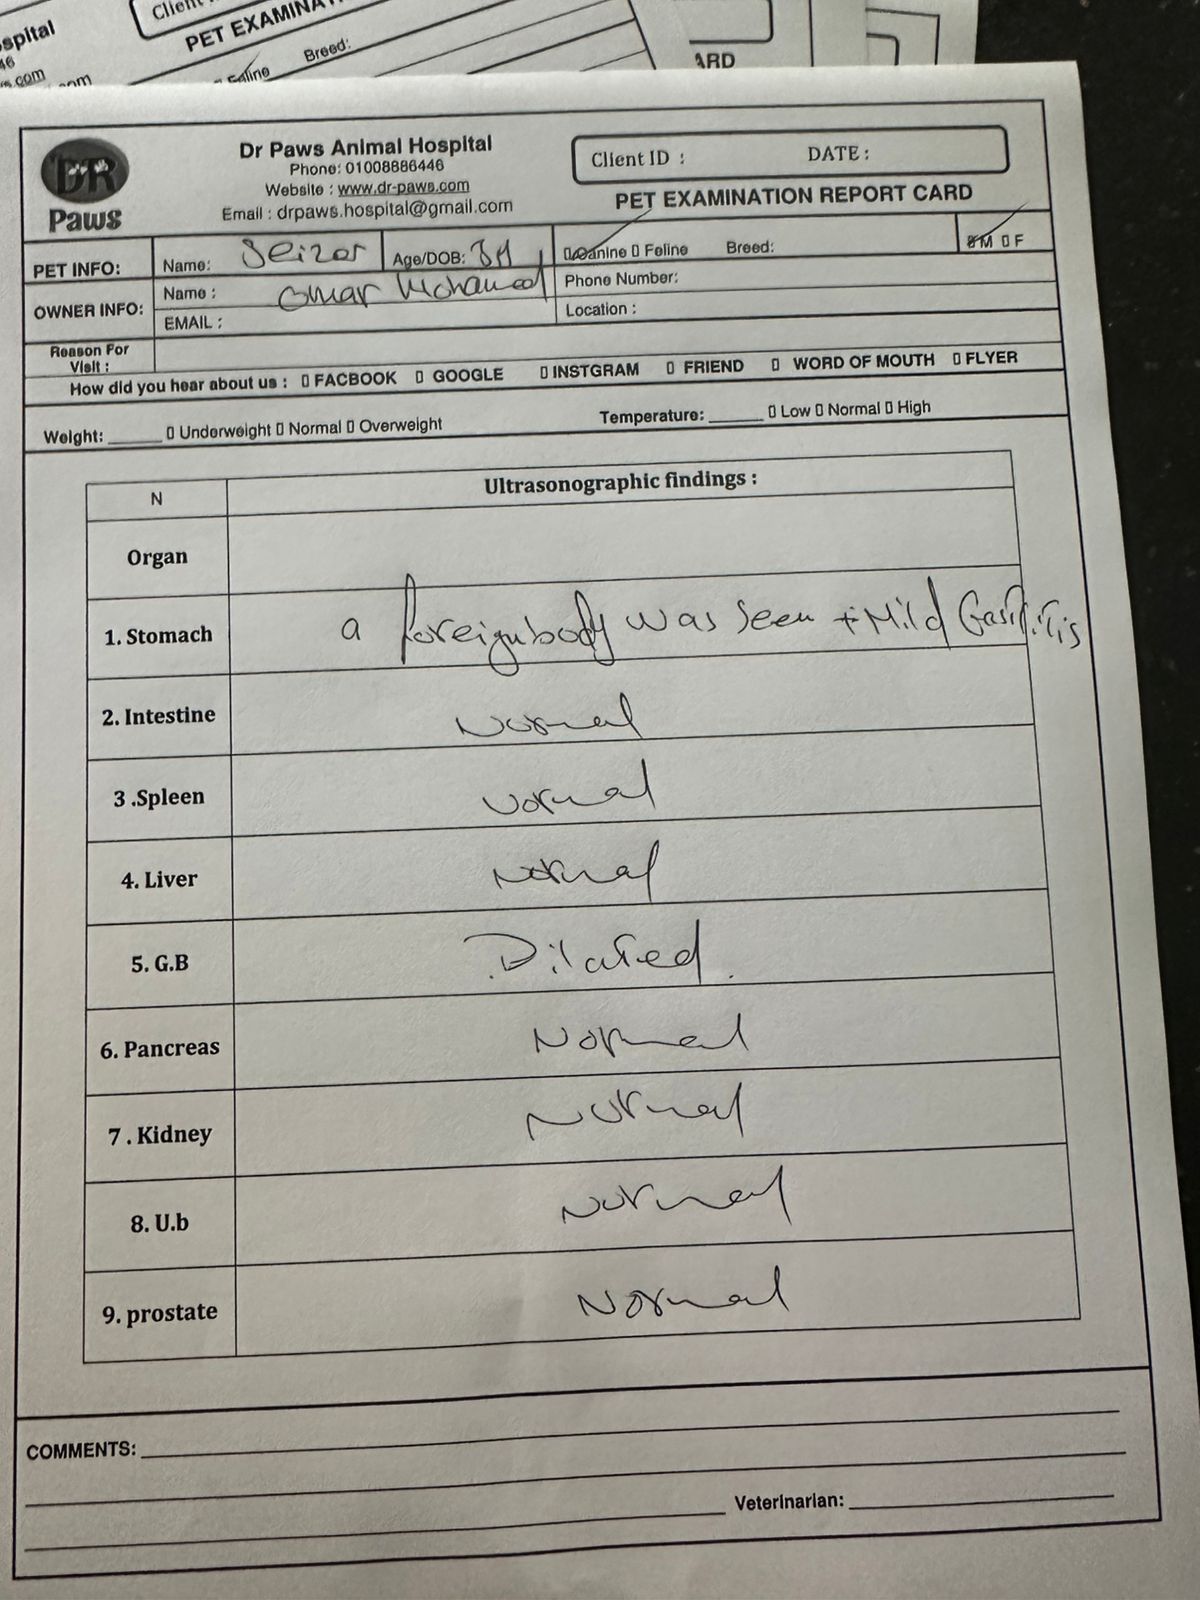 spital
Client
PET EXAMINA
46
vs.com
om
Feline
Breed:
ARD
DR
Paws
Dr Paws Animal Hospital
Phone: 01008886446
Website : www.dr-paws.com
Email : drpaws.hospital@gmail.com
Client ID : DATE :
PET EXAMINATION REPORT CARD
PET INFO: Name: Seizar Age/DOB: 3M Canine Feline Breed: M F
OWNER INFO: Name : Omar Mohamed Phone Number:
EMAIL : Location :
Reason For
Visit :
How did you hear about us : FACBOOK GOOGLE INSTGRAM FRIEND WORD OF MOUTH FLYER
Weight: ______ Underweight Normal Overweight Temperature: ______ Low Normal High
N Ultrasonographic findings :
Organ
1. Stomach a foreignbody was seen + Mild Gastritis
2. Intestine Normal
3 .Spleen Normal
4. Liver Normal
5. G.B Dilated.
6. Pancreas Normal
7 . Kidney Normal
8. U.b Normal
9. prostate Normal
COMMENTS:
Veterinarian: